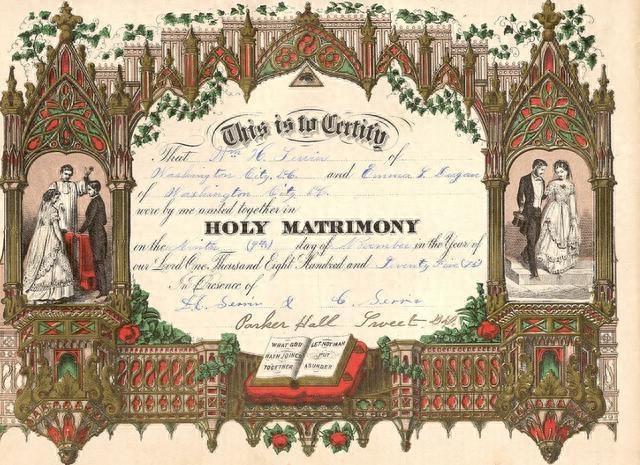 This is to Certify
That Wm H. of
Washington City, D.C. and Emma L. Dugan
of Washington City D.C.
were by me united together in
HOLY MATRIMONY
on the Ninth (9th) day of November in the Year of
our Lord One Thousand Eight Hundred and Seventy Five (75)
In Presence of
& C.
Parker Hall Sweet
WHAT GOD
HATH JOINED
TOGETHER
LET NOT MAN
PUT
ASUNDER